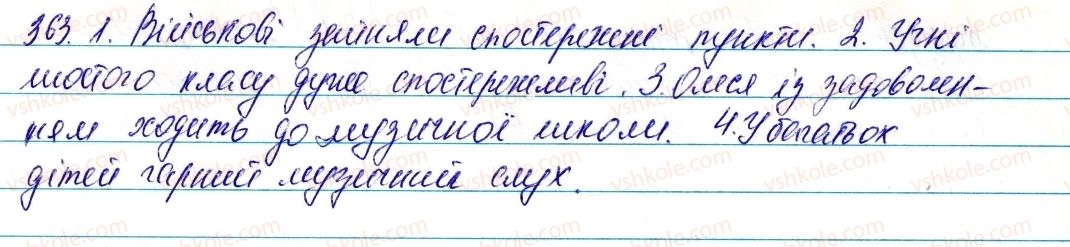 363. 1. Військові зайняли спостережні пункти. 2. Учні
шостого класу дуже спостережливі. 3. Олеся із задоволен-
ням ходить до музичної школи. 4. У багатьох
дітей гарний музичний слух.